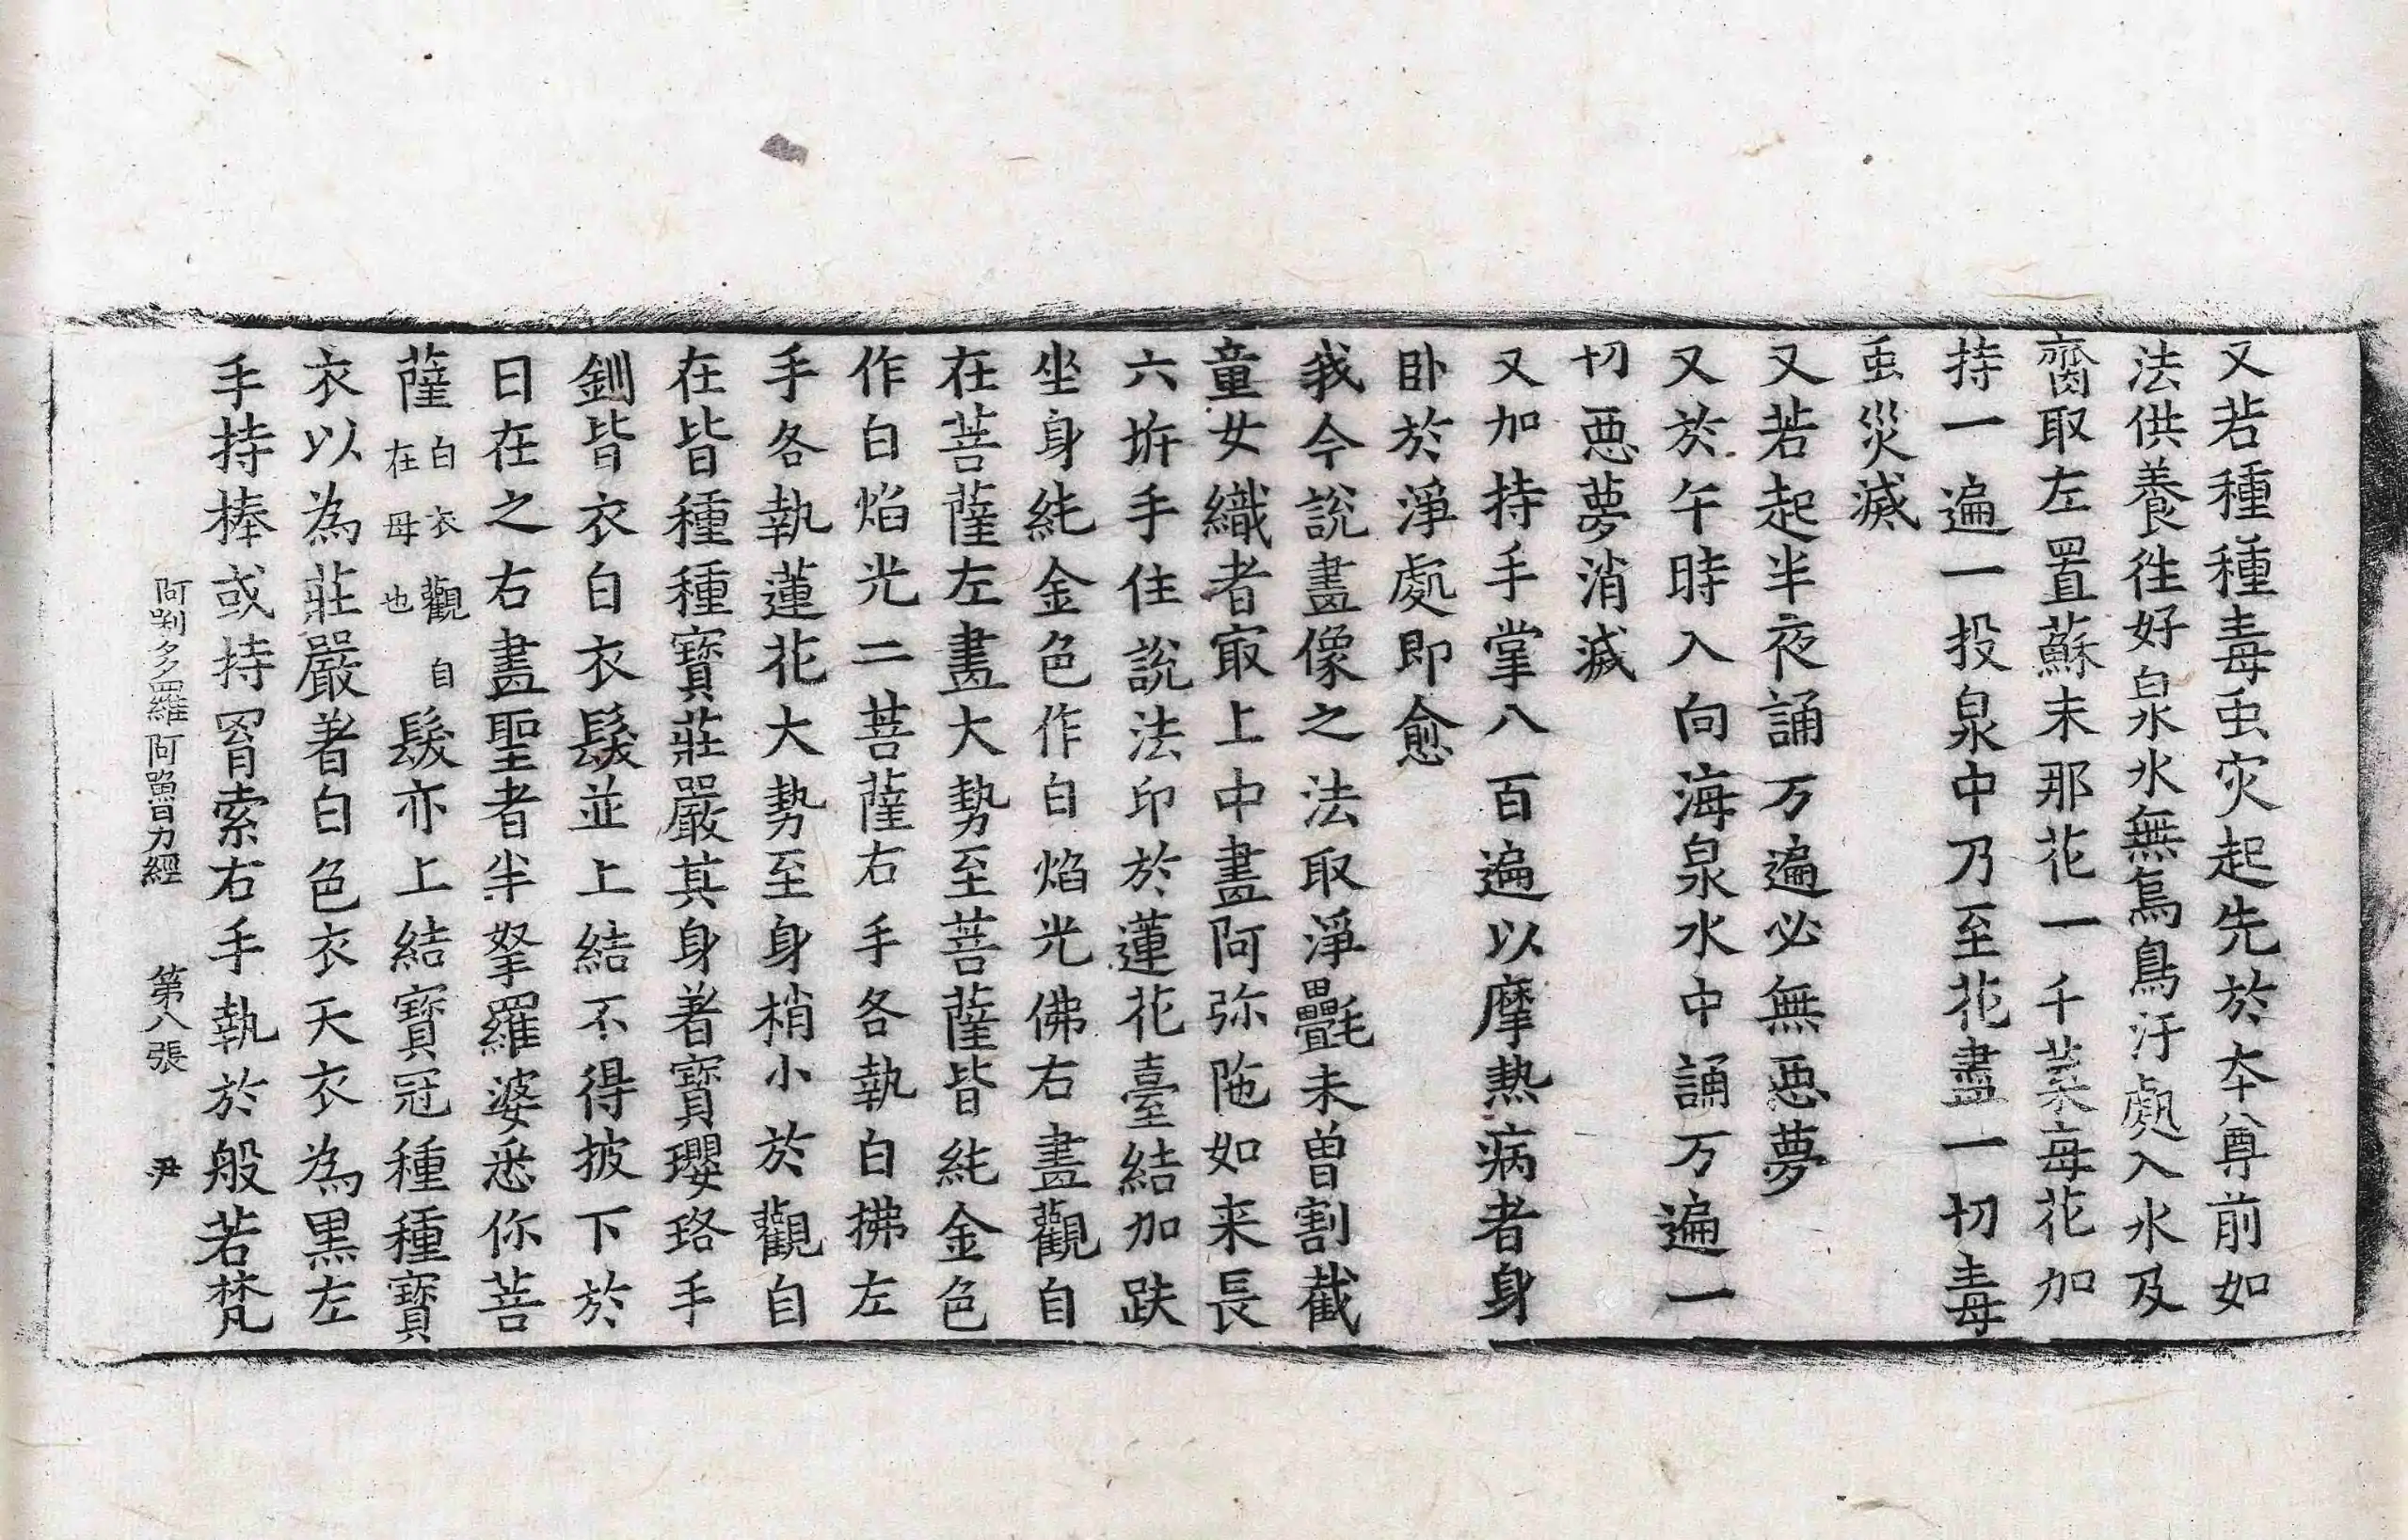 又若種種毒虫灾起先於本尊前如
法供養往好泉水無鳥鳥汙處入水及
齊取左置蘇末那花一千菜每花加
持一遍一投泉中乃至花盡一切毒
虫災滅
又若起半夜誦万遍必無惡夢
又於午時入向海泉水中誦万遍一
切惡夢消滅
又加持手掌八百遍以摩熱病者身
卧於淨處即愈
我今說畫像之法取淨㲲未曾割截
童女織者㝡上中畫阿弥陁如来長
六㭊手住說法印於蓮花臺結加趺
坐身純金色作白焰光佛右畫觀自
在菩薩左畫大勢至菩薩皆純金色
作白焰光二菩薩右手各執白拂左
手各執蓮花大勢至身梢小於觀自
在皆種種寶莊嚴其身著寶瓔珞手
釧皆衣白衣髮並上結不得披下於
日在之右畫聖者半拏羅婆悉你菩
薩白衣觀自在母也髮亦上結寶冠種種寶
衣以為莊嚴著白色衣天衣為黑左
手持棒或持罥索右手執於般若梵
阿唎多羅阿嚕力經 第八張 尹